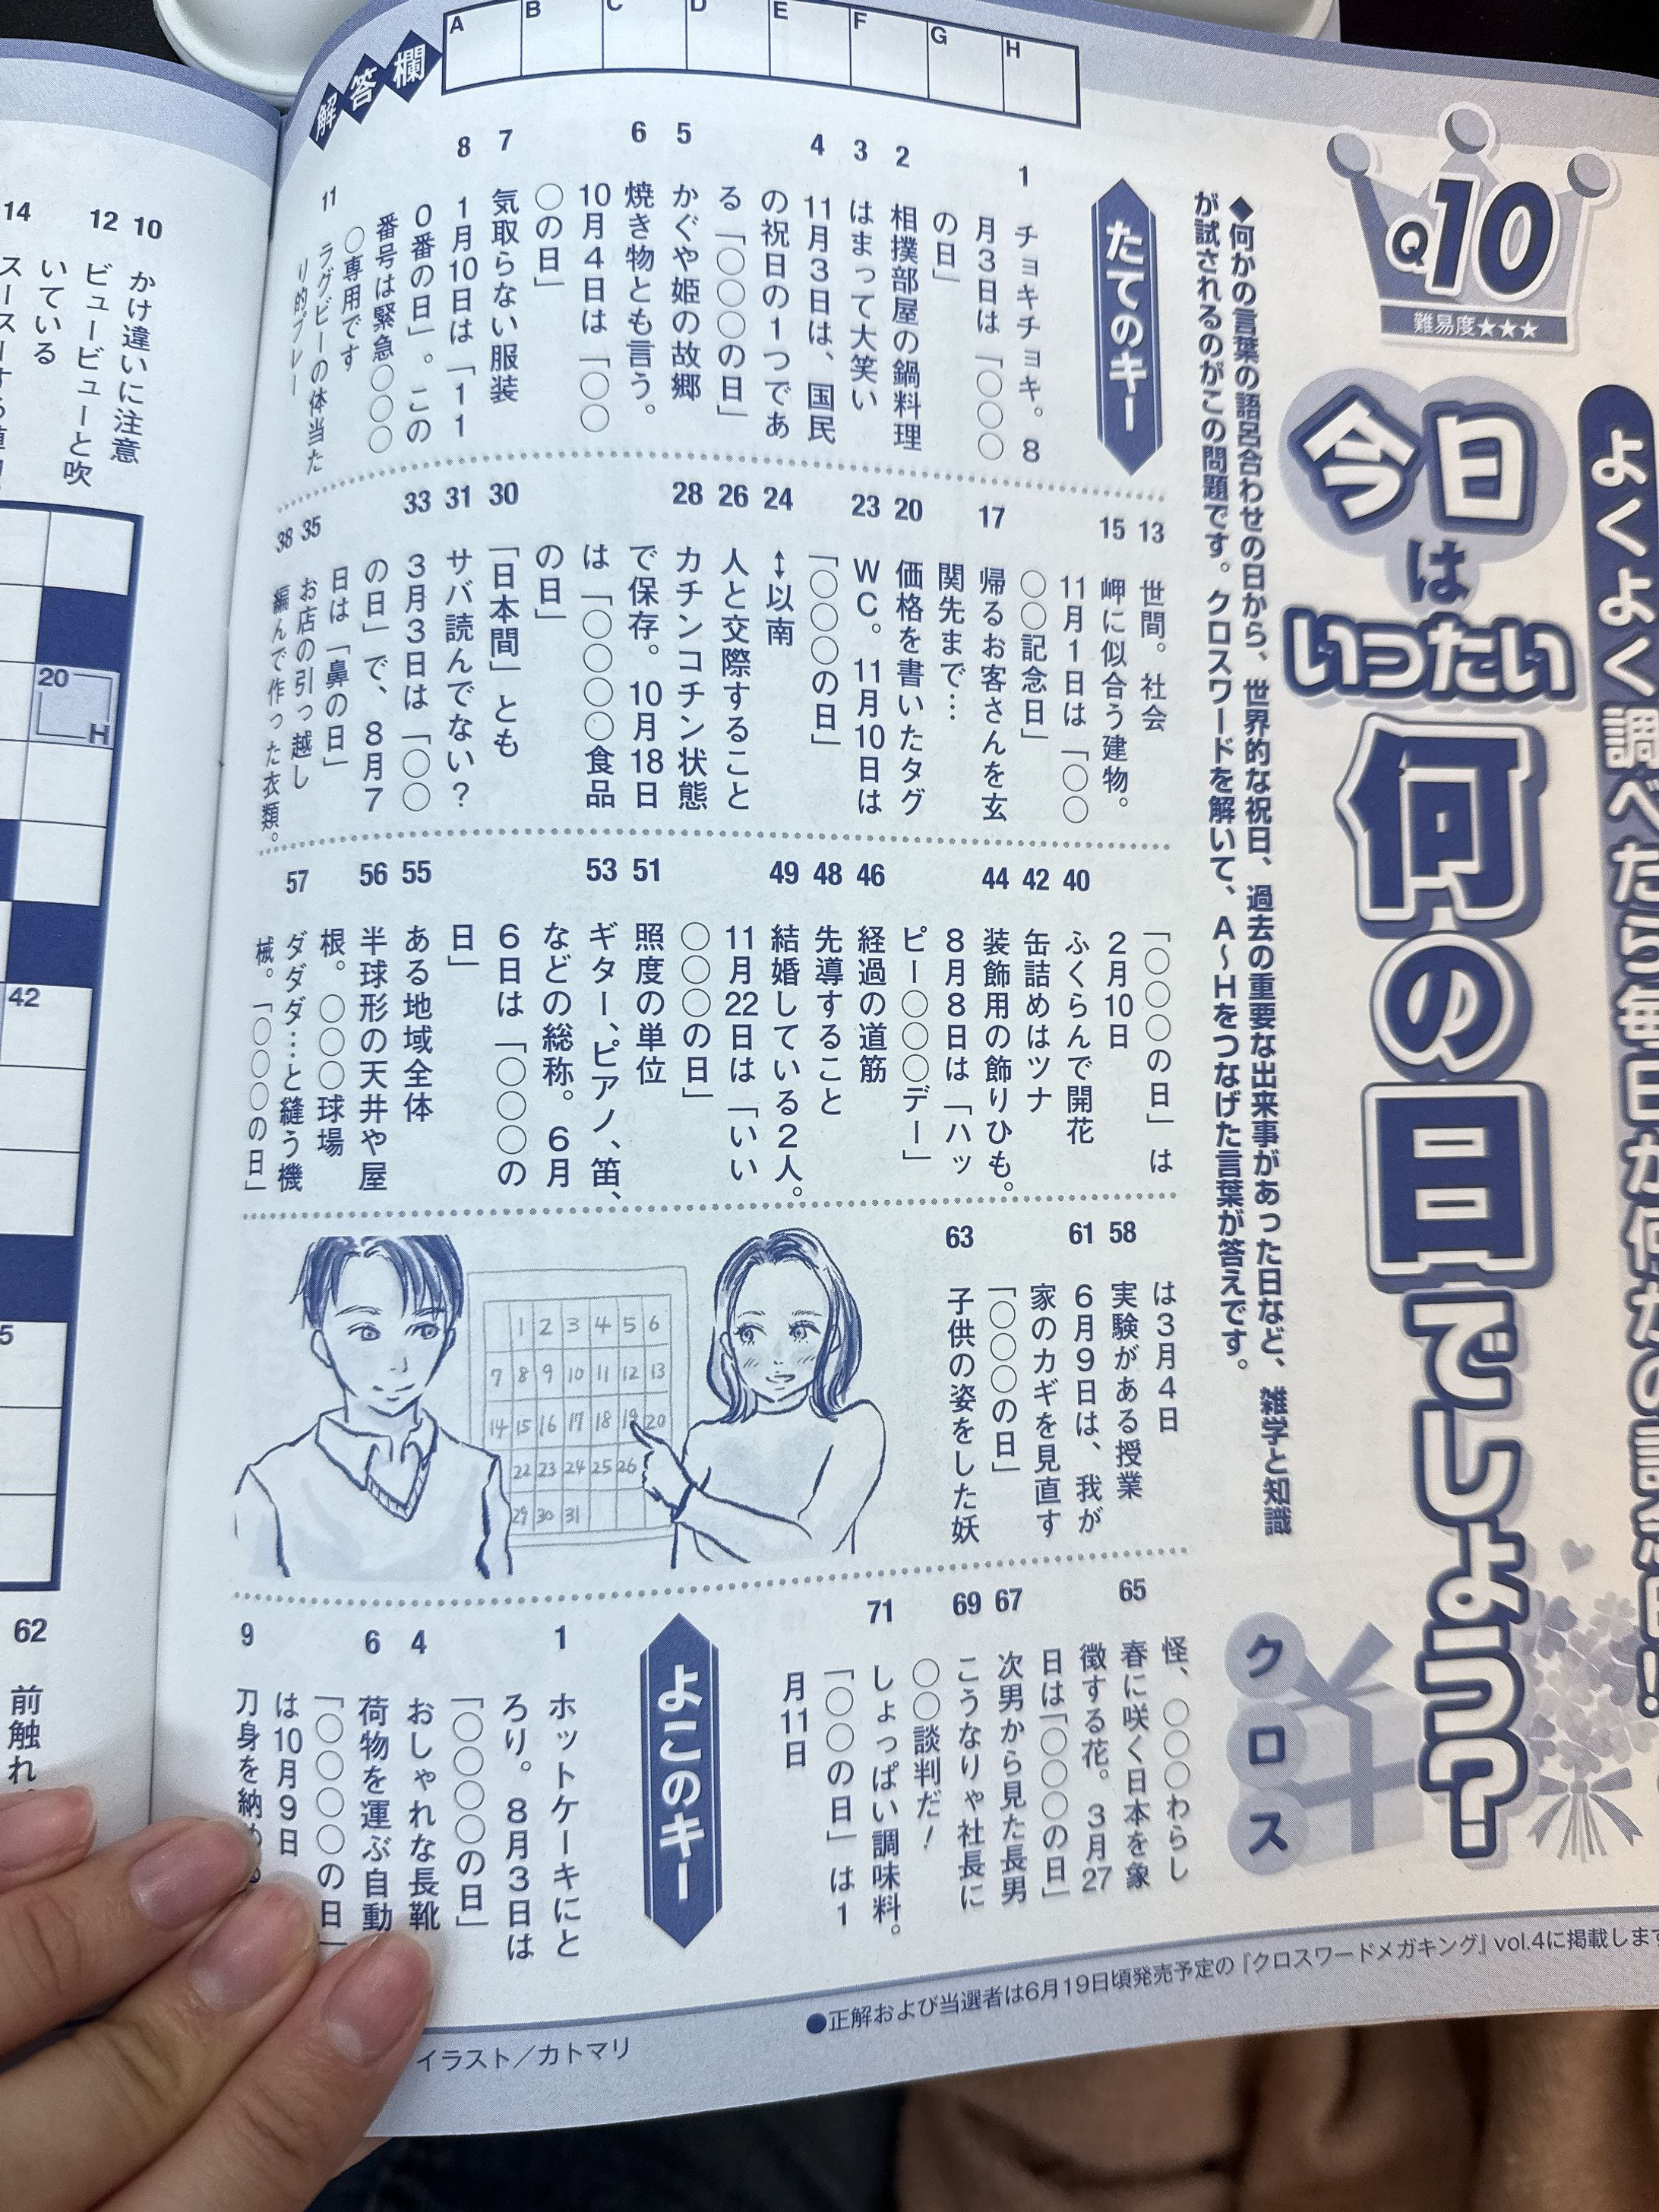 よくよく調べたら毎日が何かの記念日!!
Q10
難易度★★★
今日はいったい何の日でしょう?
クロス
◆何かの言葉の語呂合わせの日から、世界的な祝日、過去の重要な出来事があった日など、雑学と知識
が試されるのがこの問題です。クロスワードを解いて、A～Hをつなげた言葉が答えです。
解答欄
A B C D E F G H
たてのキー
1 チョキチョキ。8
月3日は「○○○
の日」
2 相撲部屋の鍋料理
3 はまって大笑い
4 11月3日は、国民
の祝日の1つであ
る「○○○の日」
5 かぐや姫の故郷
6 焼き物とも言う。
10月4日は「○○
○の日」
7 気取らない服装
8 1月10日は「11
0番の日」。この
番号は緊急○○○
○専用です
11 ラグビーの体当た
り的プレー
13 世間。社会
15 岬に似合う建物。
11月1日は「○○
○○記念日」
17 帰るお客さんを玄
関先まで…
20 価格を書いたタグ
23 WC。11月10日は
「○○○の日」
24 ↕以南
26 人と交際すること
28 カチンコチン状態
で保存。10月18日
は「○○○○食品
の日」
30 「日本間」とも
31 サバ読んでない?
33 3月3日は「○○
の日」で、8月7
日は「鼻の日」
35 お店の引っ越し
38 編んで作った衣類。
「○○○の日」は
2月10日
40 ふくらんで開花
42 缶詰めはツナ
44 装飾用の飾りひも。
8月8日は「ハッ
ピー○○○デー」
46 経過の道筋
48 先導すること
49 結婚している2人。
11月22日は「いい
○○○の日」
51 照度の単位
53 ギター、ピアノ、笛、
などの総称。6月
6日は「○○○の
日」
55 ある地域全体
56 半球形の天井や屋
根。○○○球場
57 ダダダ…と縫う機
械。「○○○の日」
は3月4日
58 実験がある授業
61 6月9日は、我が
家のカギを見直す
「○○○の日」
63 子供の姿をした妖
怪、○○○わらし
65 春に咲く日本を象
徴する花。3月27
日は「○○○の日」
67 次男から見た長男
69 こうなりゃ社長に
○○談判だ!
71 しょっぱい調味料。
「○○の日」は1
月11日
よこのキー
1 ホットケーキにと
ろり。8月3日は
「○○○○の日」
4 おしゃれな長靴
6 荷物を運ぶ自動
「○○○○の日」
は10月9日
9 刀身を納
1 2 3 4 5 6
7 8 9 10 11 12 13
14 15 16 17 18 19 20
22 23 24 25 26
29 30 31
●正解および当選者は6月19日頃発売予定の『クロスワードメガキング』vol.4に掲載します
イラスト/カトマリ
10 かけ違いに注意
12 ビュービューと吹
いている
14
20
H
42
5
62 前触れ